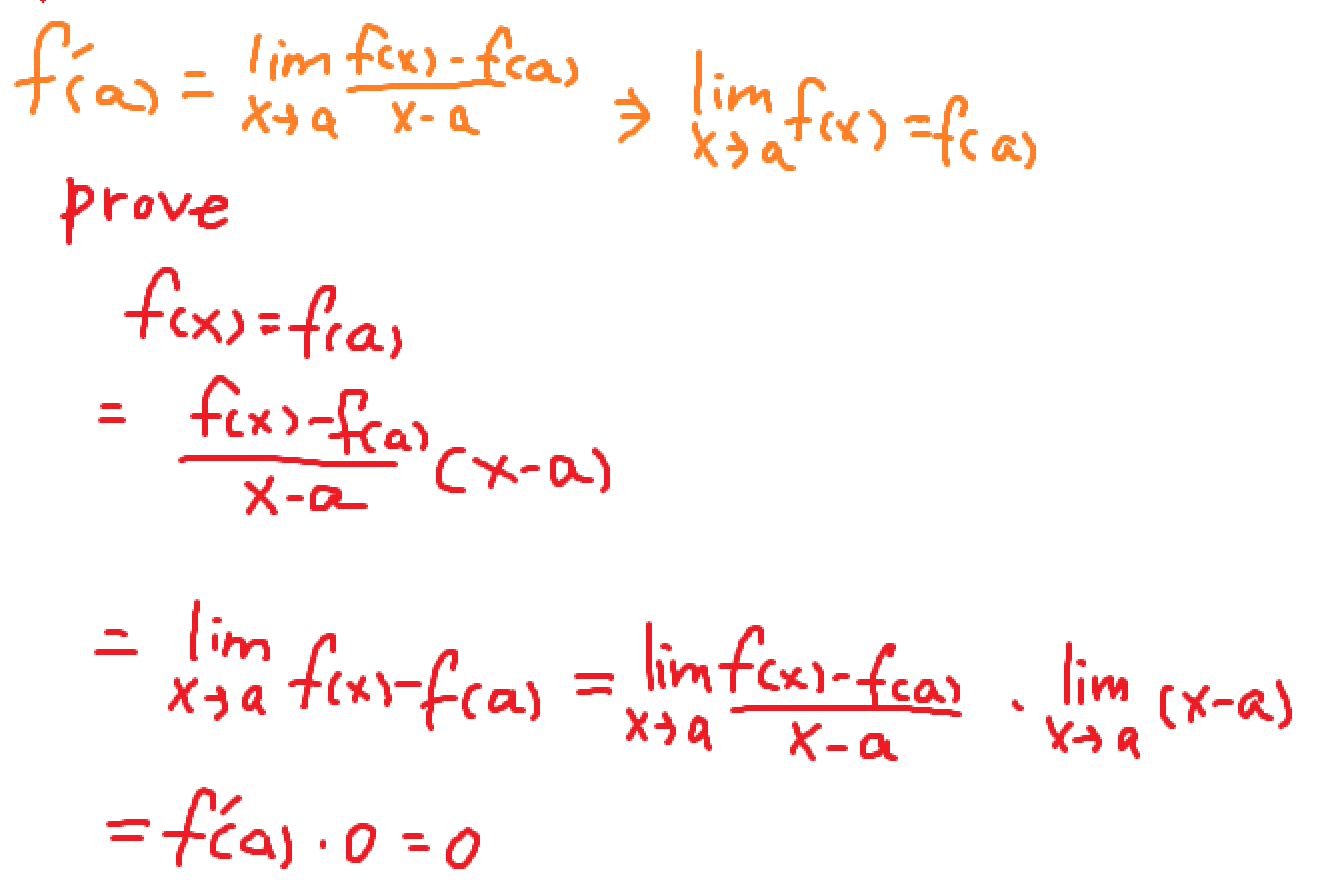 f'(a) = lim x→a f(x)-f(a) / x-a ⇒ lim x→a f(x) = f(a)
prove
f(x) = f(a)
= f(x)-f(a) / x-a (x-a)
= lim x→a f(x)-f(a) = lim x→a f(x)-f(a) / x-a · lim x→a (x-a)
= f'(a) · 0 = 0